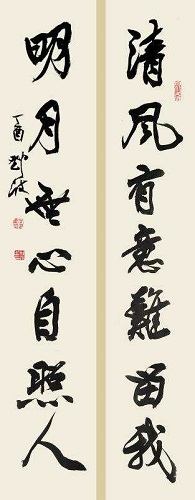 清风有意難留我
明月無心自照人
丁酉